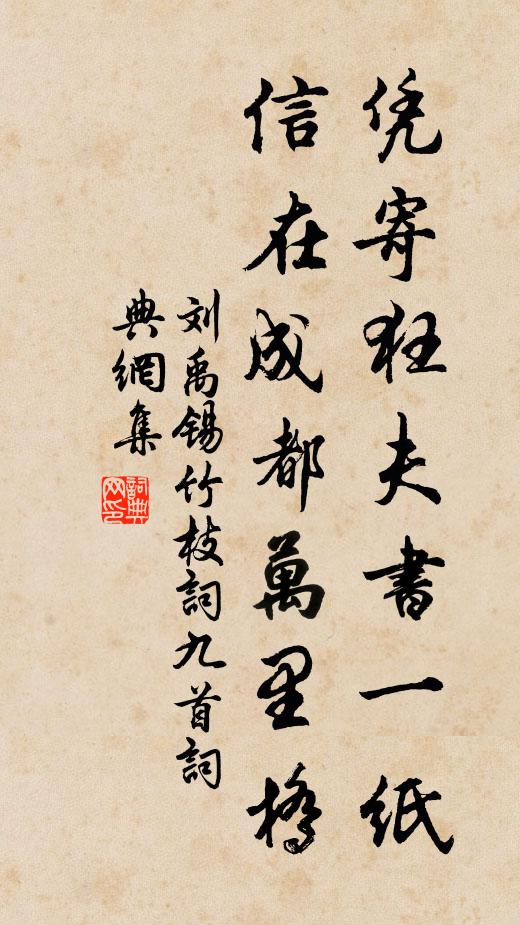 凭寄狂夫書一紙
信在成都萬里橋
刘禹锡竹枝詞九首詞
典網集
詞典网印